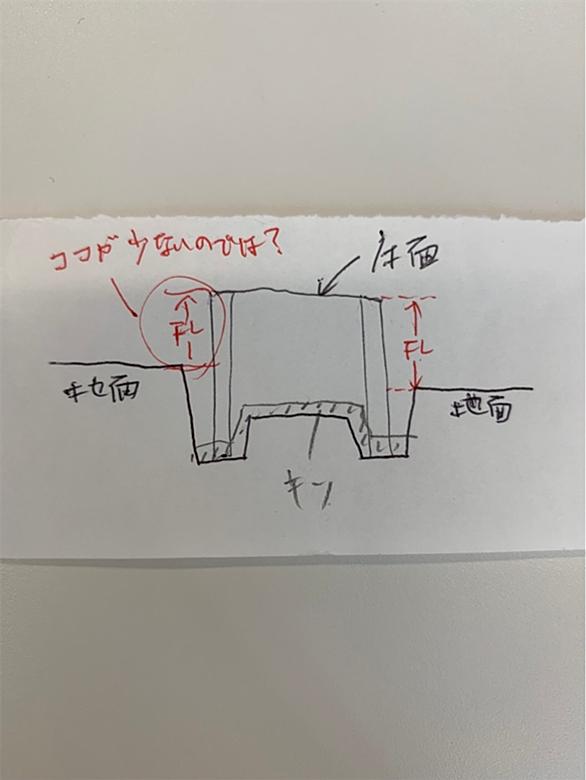 ココが少ないのでは?
床面
FL
FL
地面
地面
キソ